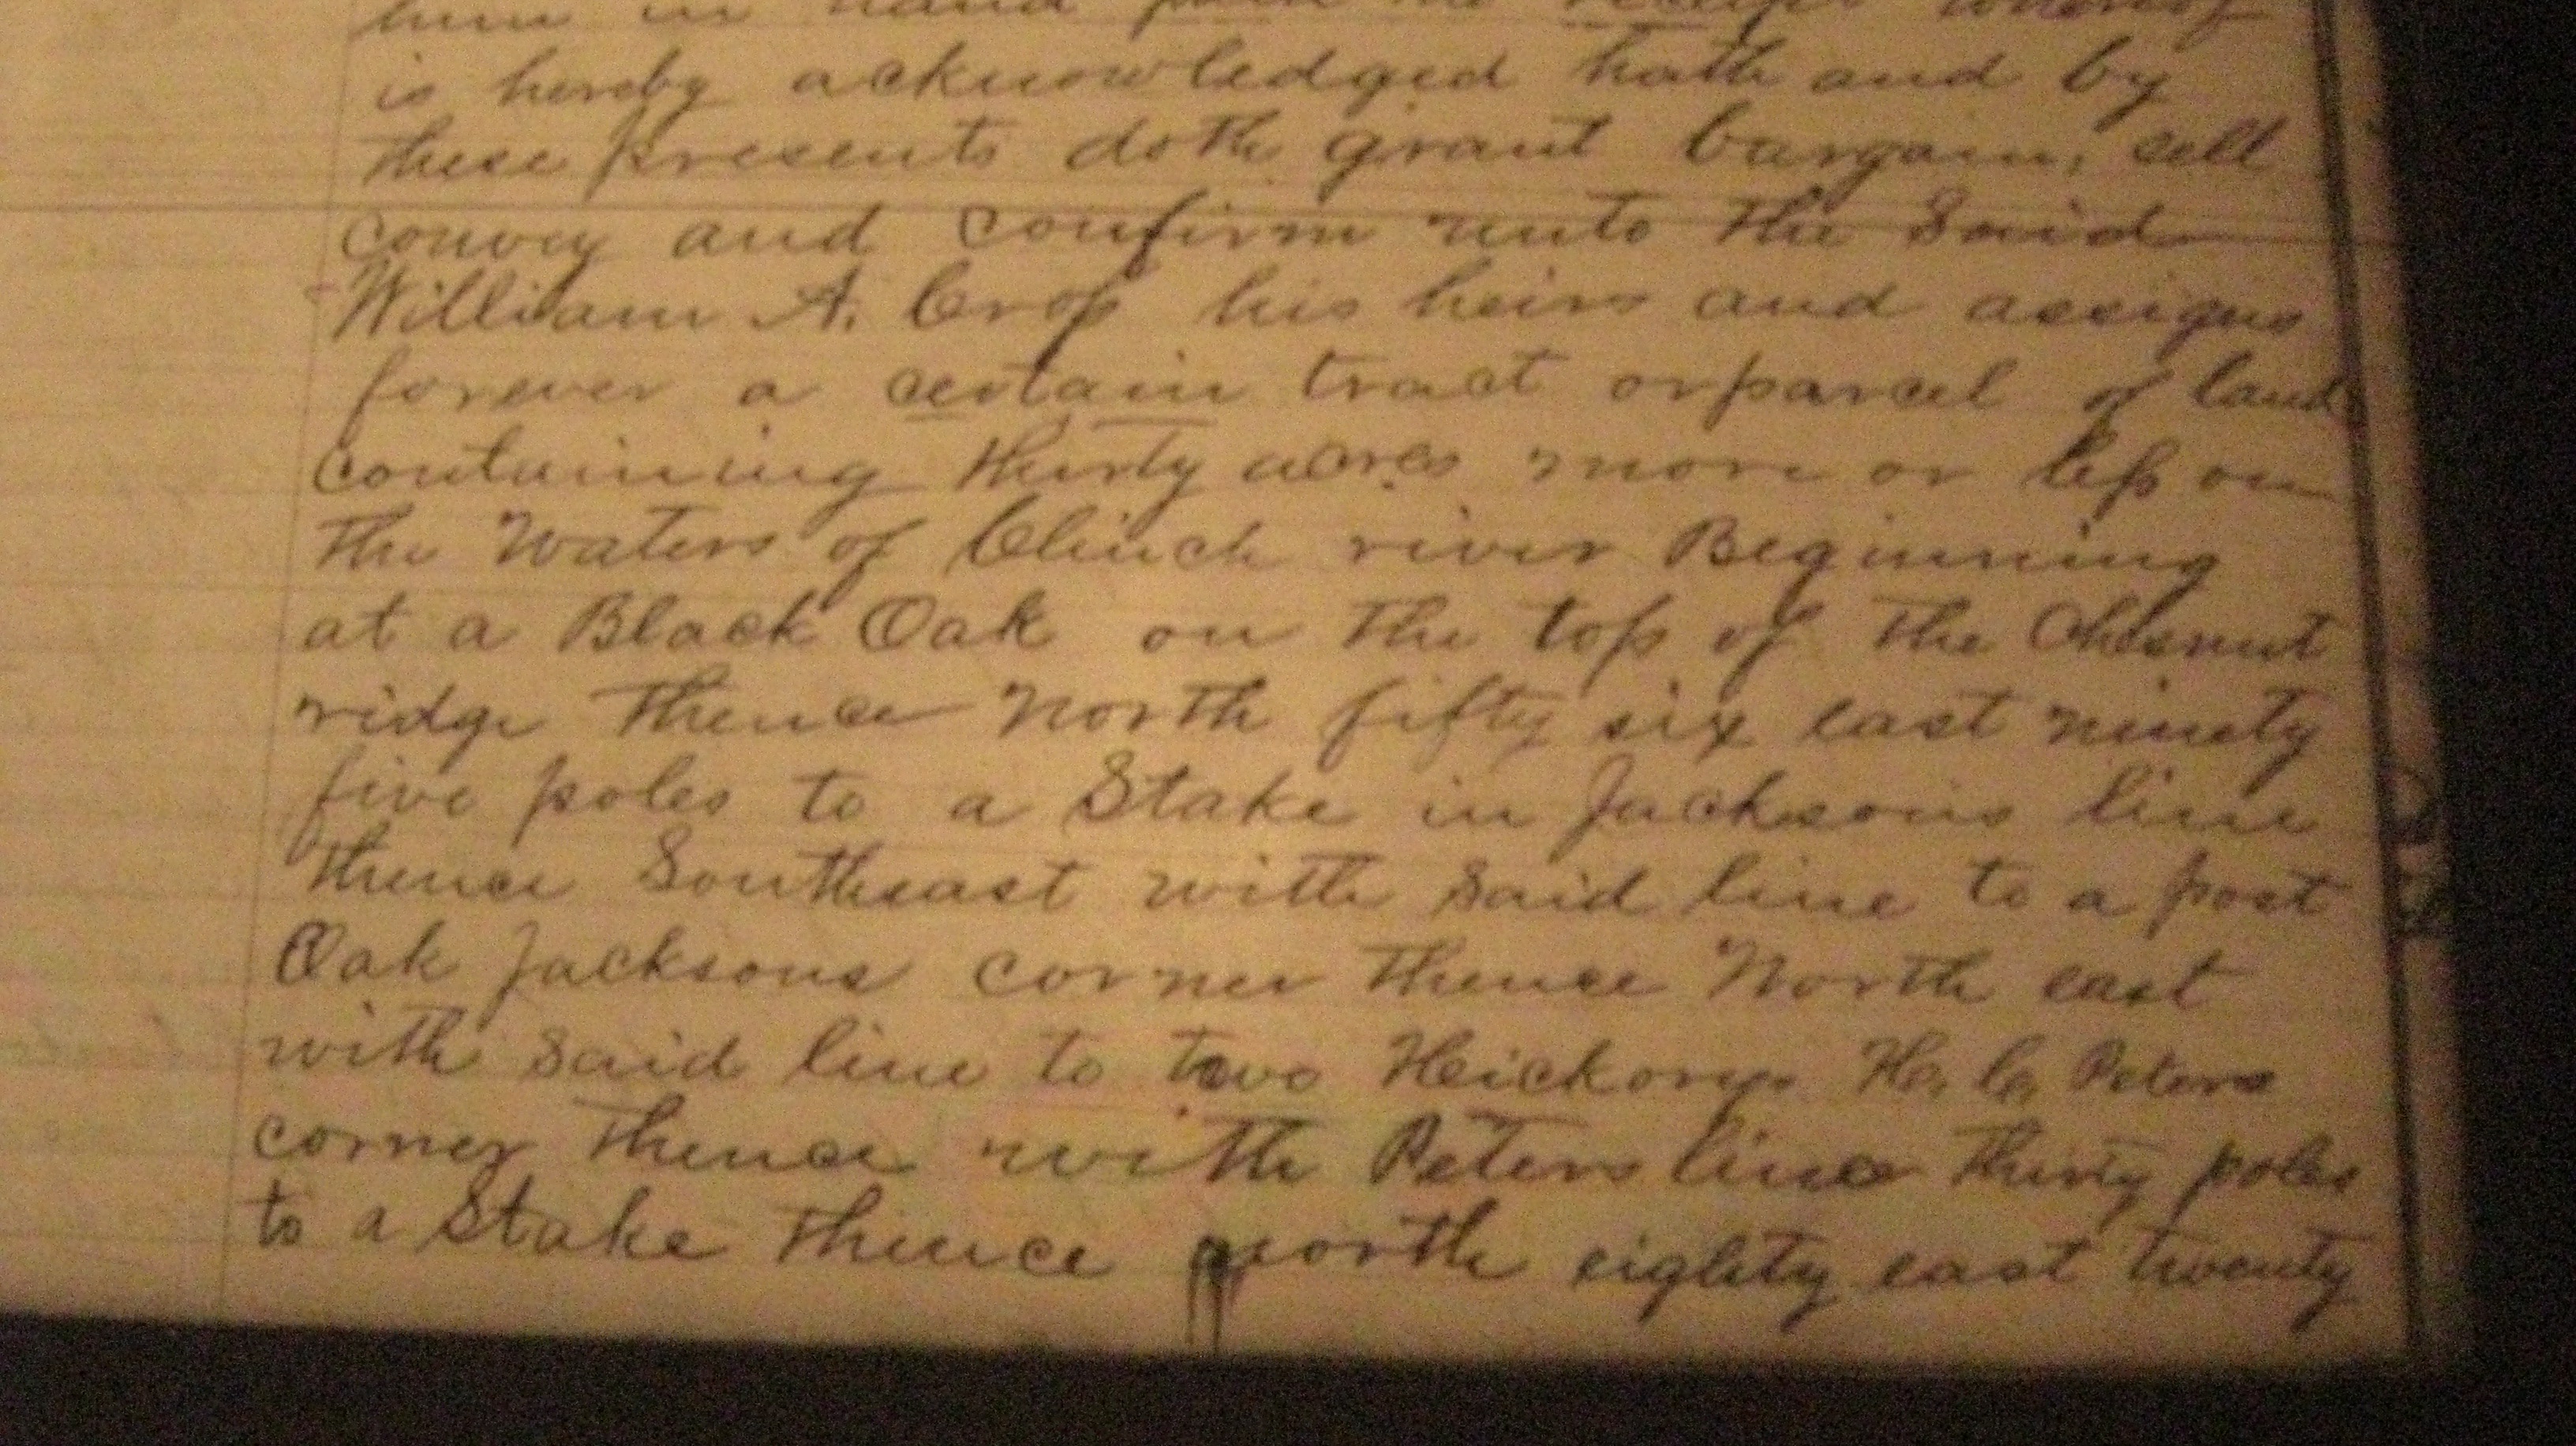 him in hand paid the receipt whereof
is hereby acknowledged hath and by
these presents doth grant bargain, sell
convey and confirm unto the Said
William A. Crop his heirs and assigns
forever a certain tract or parcel of land
containing thirty acres more or less on
the Waters of Clinch river Beginning
at a Black Oak on the top of the Chesnut
ridge Thence North fifty six east ninety
five poles to a Stake in Jacksons line
thence Southeast with Said line to a post
Oak Jacksons corner thence North east
with Said line to two Heickorys H. C. Peters
corner thence with Peters line thirty poles
to a Stake thence north eighty east twenty